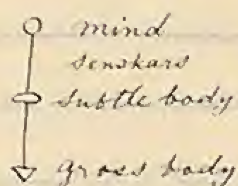 mind
senskars
subtle body
gross body